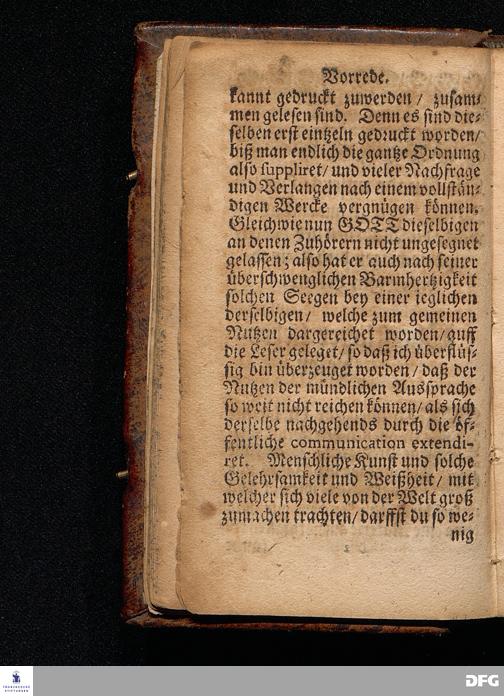 Vorrede.
kannt gedruckt zuwerden / zusam-
men gelesen sind. Denn es sind die-
selben erst eintzeln gedruckt worden/
biß man endlich die gantze Ordnung
also suppliret/ und vieler Nachfrage
und Verlangen nach einem vollstän-
digen Wercke vergnügen können.
Gleichwie nun GOTT dieselbigen
an denen Zuhörern nicht ungesegnet
gelassen; also hat er auch nach seiner
überschwenglichen Barmhertzigkeit
solchen Seegen bey einer ieglichen
derselbigen/ welche zum gemeinen
Nutzen dargereichet worden/ auff
die Leser geleget/ so daß ich überflüs-
sig bin überzeuget worden/ daß der
Nutzen der mündlichen Aussprache
so weit nicht reichen können/ als sich
derselbe nachgehends durch die öf-
fentliche communication extendi-
ret. Menschliche Kunst und solche
Gelehrsamkeit und Weißheit/ mit
welcher sich viele von der Welt groß
zumachen trachten/ darffst du so we-
nig
FRANCKESCHE
STIFTUNGEN
DFG